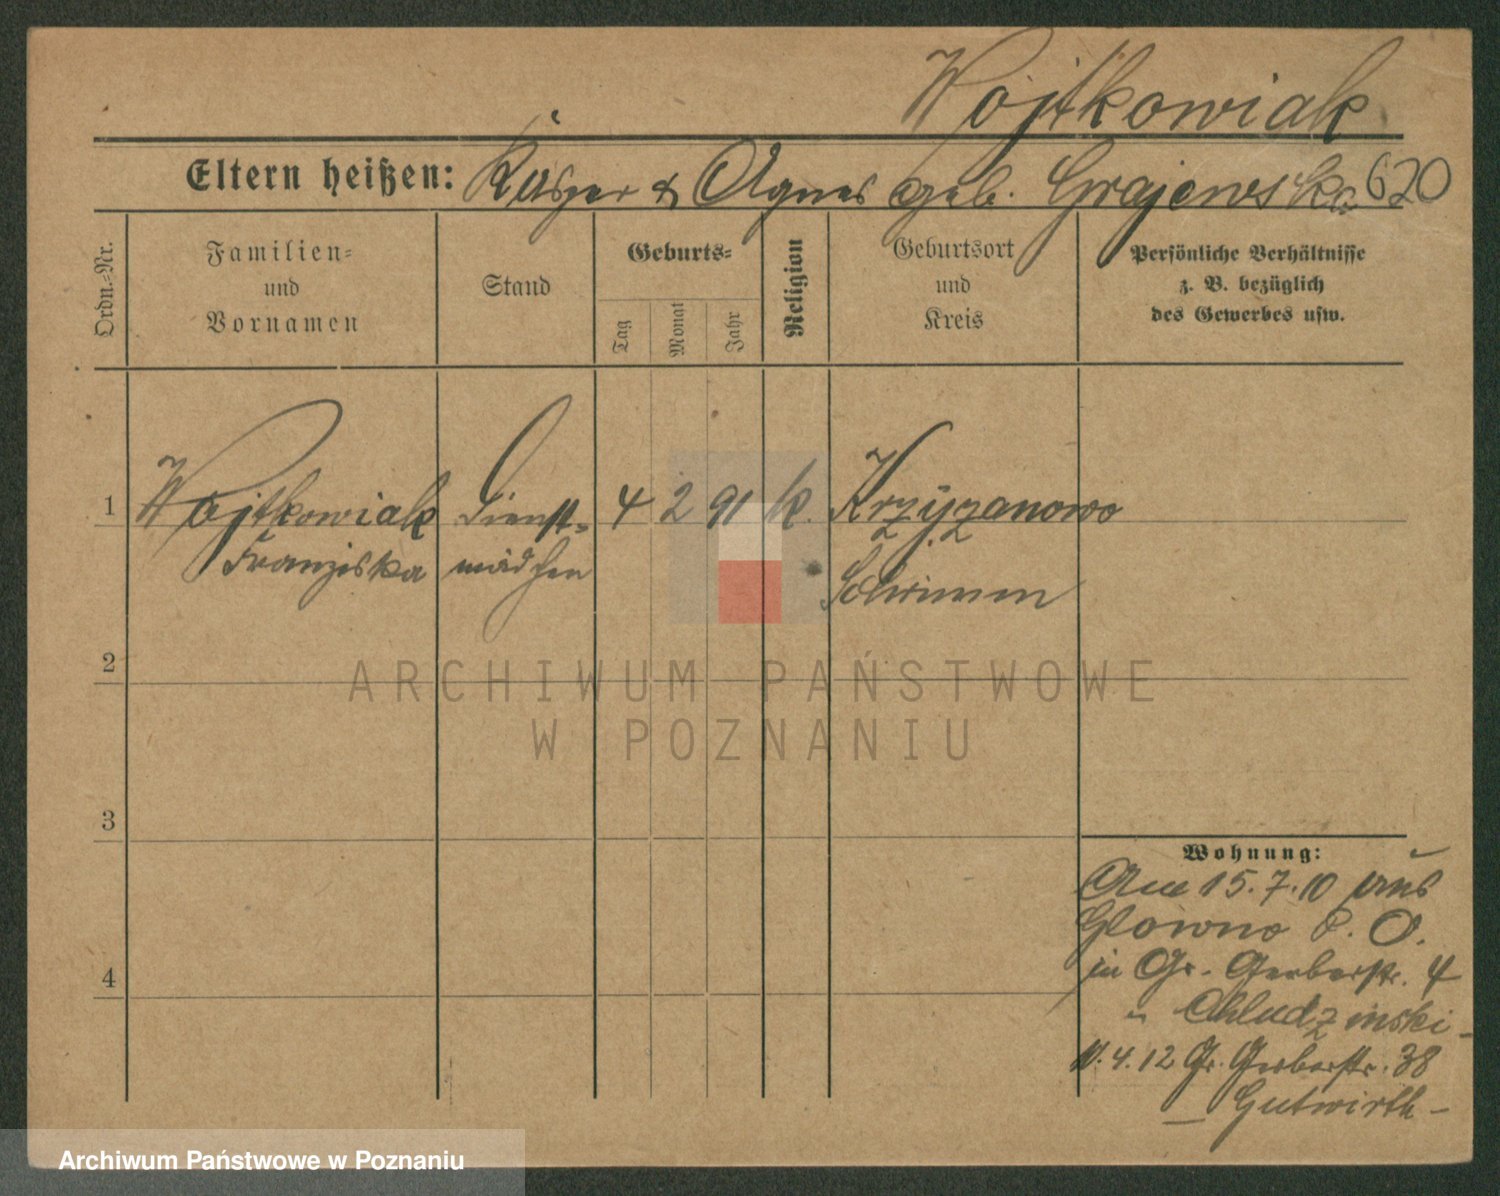 Wojtkowiak
Eltern heißen: Kasper & Agnes geb. Grajewska 620
Ordn.-Nr.
Familien-
und
Vornamen
Stand
Geburts-
Tag
Monat
Jahr
Religion
Geburtsort
und
Kreis
Persönliche Verhältnisse
z. B. bezüglich
des Gewerbes usw.
1 Wojtkowiak Dienst- 4 2 91 k. Krzyżanowo
Franziska mädchen Schrimm
2
3
4
Wohnung:
Am 15.7.10 aus
Glowno P. O.
in Gr. Gerberstr. 4
Chludzinski -
4.12 Gr. Gerberstr. 38
- Gutwirth -
ARCHIWUM PAŃSTWOWE
W POZNANIU
Archiwum Państwowe w Poznaniu